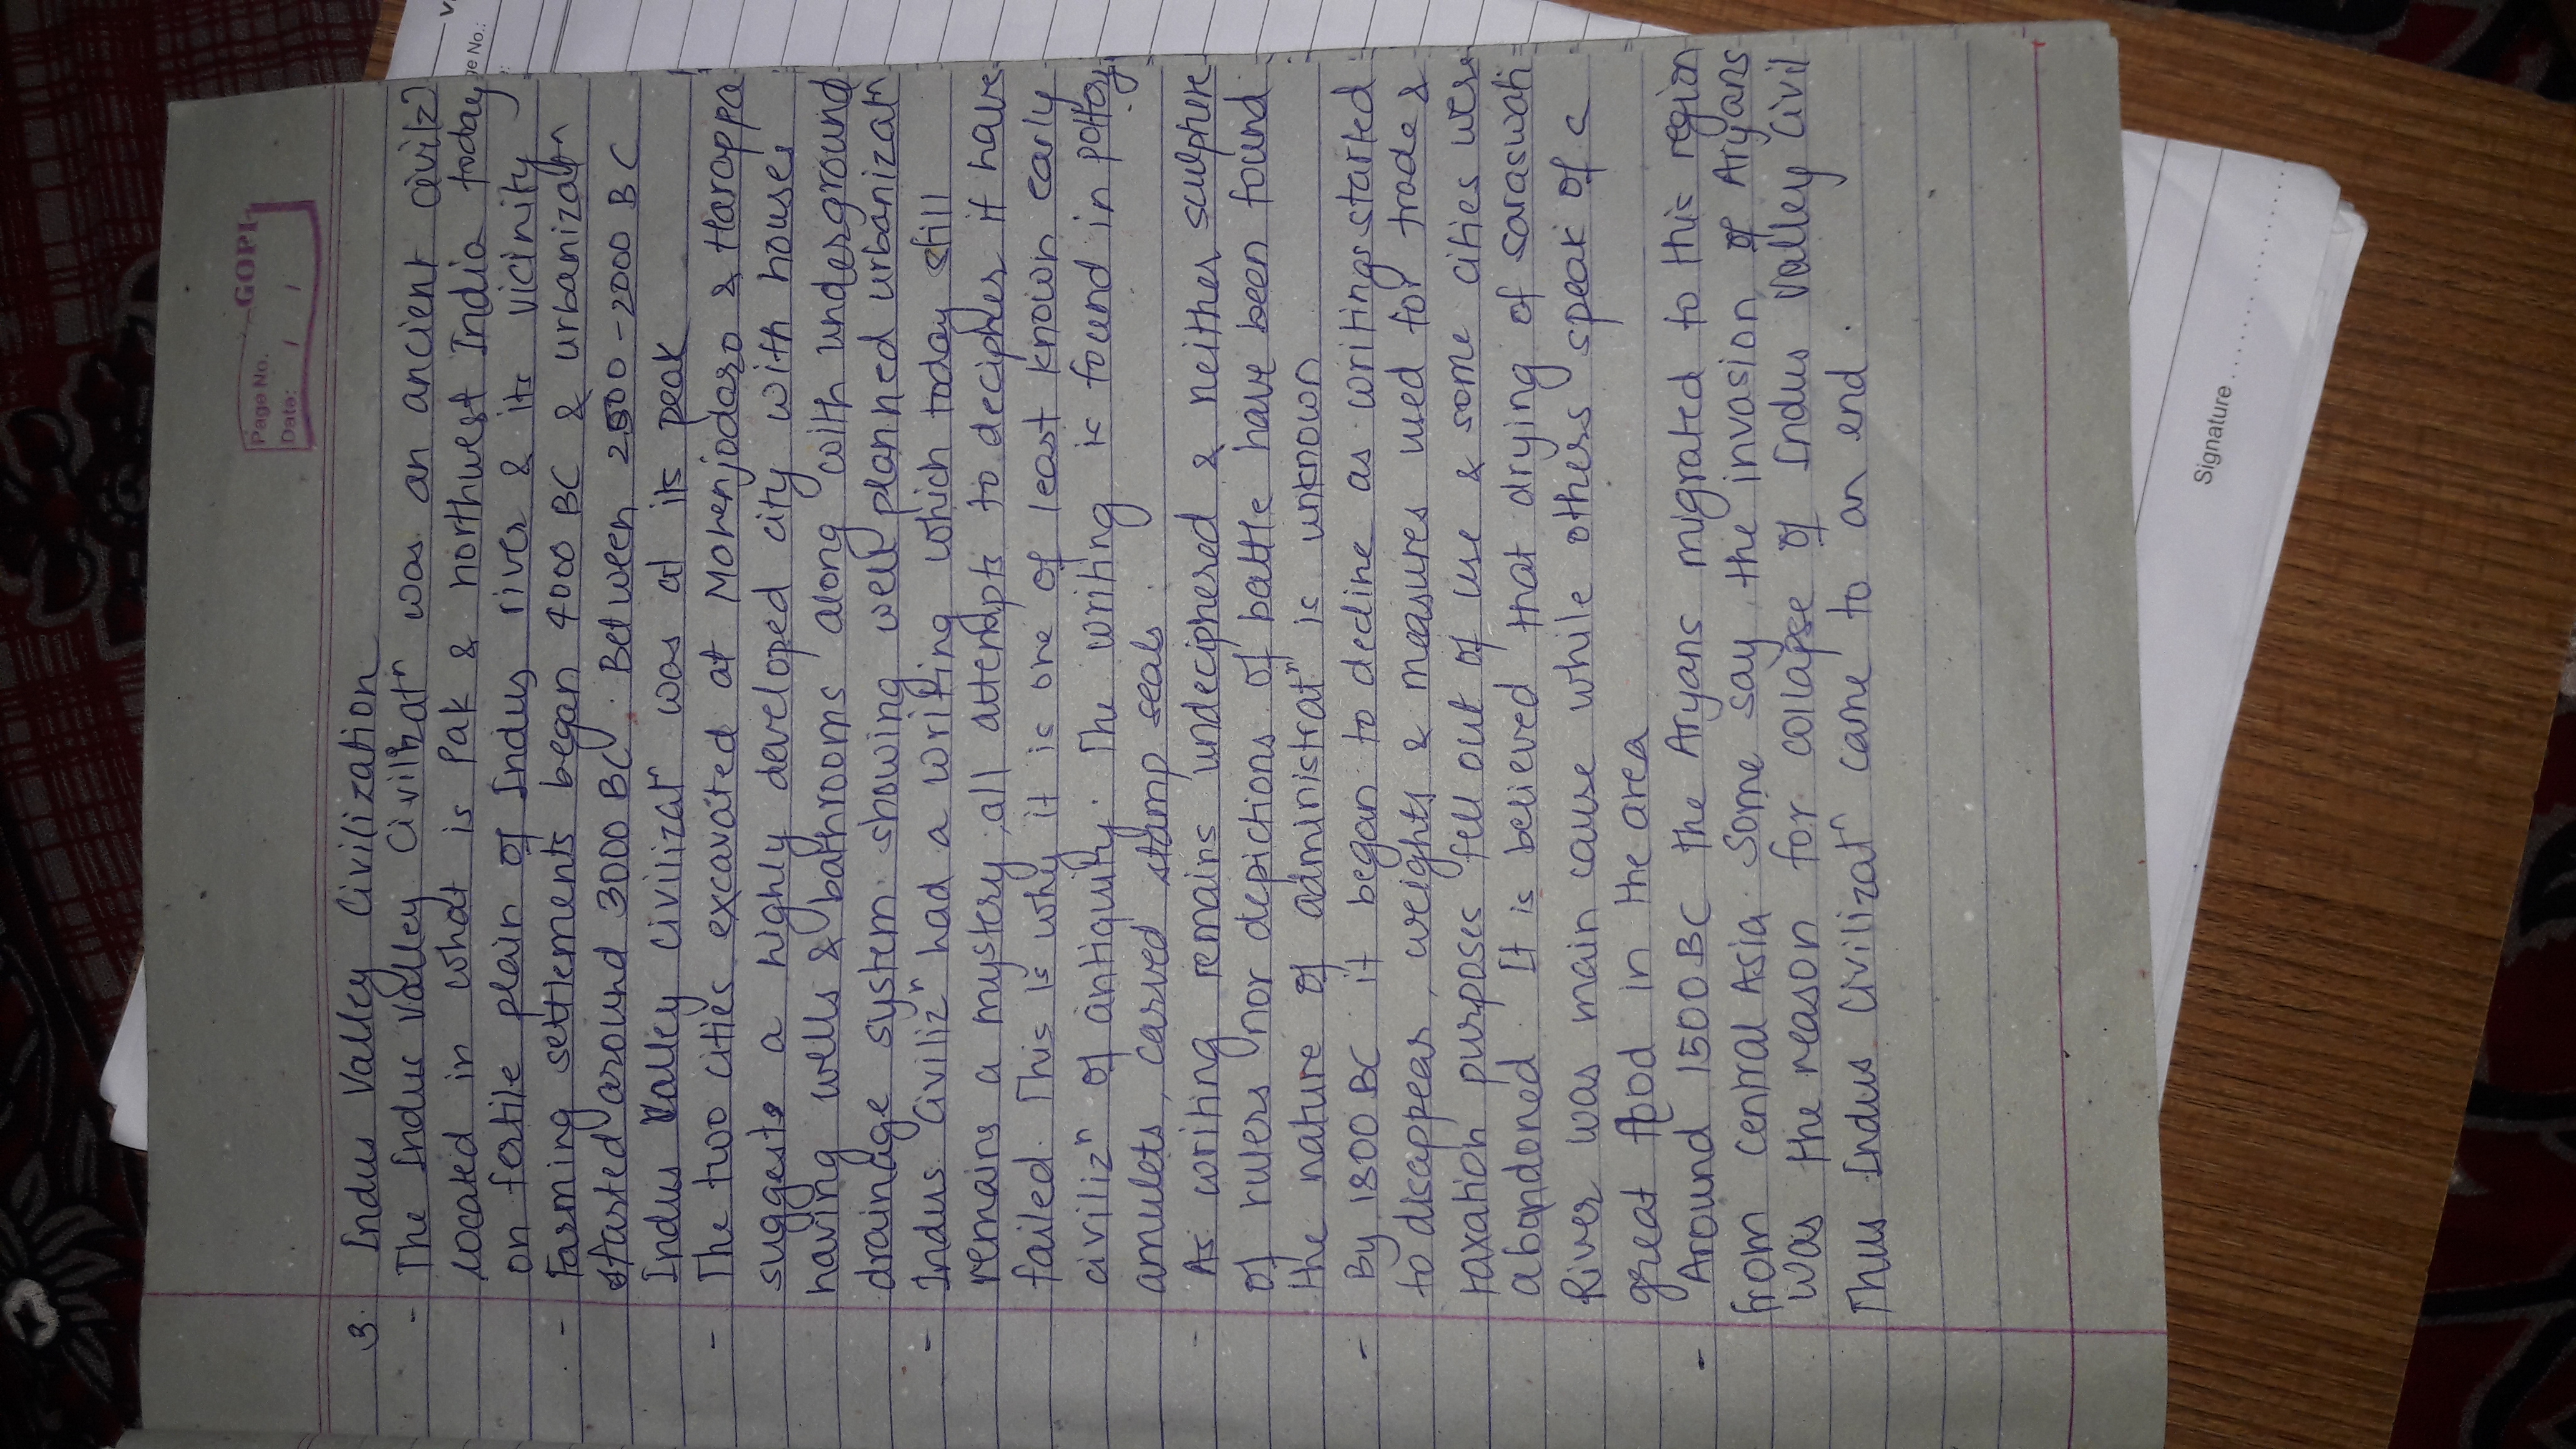 GOPI
Page No.
Date: / /
3. Indus Valley Civilization
- The Indus Valley Civilizatⁿ was an ancient civilzⁿ
located in what is Pak & northwest India today
on fertile plain of Indus river & its vicinity
- Farming settlements began 4000 BC & urbanizatⁿ
started around 3000 BC. Between 2500-2000 BC
Indus Valley civilizatⁿ was at its peak
- The two cities excavated at Mohenjodaro & Harappa
suggests a highly developed city with houses
having wells & bathrooms along with underground
drainage system showing well planned urbanizatⁿ
- Indus Civilizⁿ had a writing which today still
remains a mystery, all attempts to decipher it have
failed. This is why it is one of least known early
civilizⁿ of antiquity. The writing is found in pottery,
amulets, carved stamp seals.
- As writing remains undeciphered & neither sculpture
of rulers nor depictions of battle have been found
the nature of administratⁿ is unknown
- By 1800 BC it began to decline as writings started
to disappear, weights & measures used for trade &
taxation purposes fell out of use & some cities were
abandoned. It is believed that drying of saraswati
River was main cause while others speak of a
great flood in the area
- Around 1500 BC the Aryans migrated to this region
from central Asia. Some say the invasion of Aryans
was the reason for collapse of Indus Valley Civil
Thus Indus Civilizatⁿ came to an end.
ge No.:
Signature